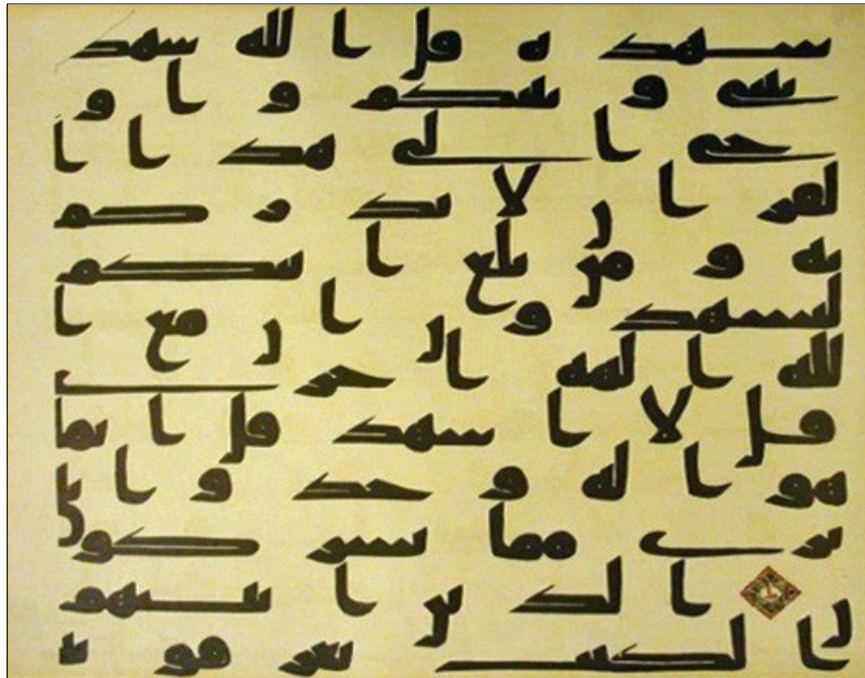 شهدة قل الله شهيد
بيني وبينكم واو
حي الي هذا ا
لقران لانذركم
به ومن بلغ ائنكم
لتشهدون ان مع ا
لله الهة اخرى
قل لا اشهد قل انما
هو اله وحد وانن
ي بري مما تشركو
ن الذين اتينهم
الكتب يعرفونه